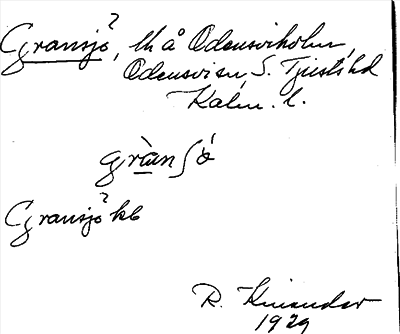 Gransjö, lh å Odensviholm,
Odensvi sn, S. Tjusts hd
Kalm. l.
gràn ʃö́
Gransjö kb
R. Kinander
1929